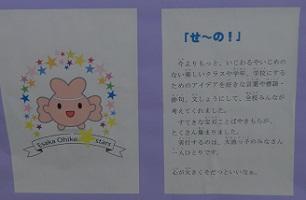 Esaka Ohike stars
「せ～の！」
今よりもっと、いじわるやいじめの
ない楽しいクラスや学年、学校にする
ためのアイデアを好きな言葉や標語・
俳句、文しょうにして、全校みんなが
考えてくれました。
すてきな宝石ことばやきもちが、
たくさん集まりました。
実行するのは、大池っ子のみなさん
一人ひとりです。
心が大きくそだつといいなぁ。